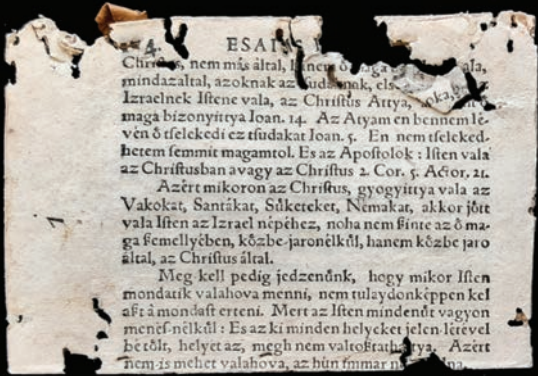 4. ESAIAS
Christus, nem más által, hanem ő maga vala,
mindazáltal, azoknak az tsudáknak, első az
Izraelnek Iſtene vala, az Chriſtus Attya,
maga bizonyittya Ioan. 14. Az Atyam en bennem lé-
vén ő tſelekedi ez tſudakat Ioan. 5. En nem tſeleked-
hetem ſemmit magamtol. Es az Apoſtolok : Iſten vala
az Chriſtusban avagy az Chriſtus 2. Cor. 5. Actor. 21.
Azért mikoron az Chriſtus, gyogyittya vala az
Vakokat, Santákat, Sűketeket, Némakat, akkor jőtt
vala Iſten az Izrael népéhez, noha nem ſzinte az ő ma-
ga ſzemellyében, kőzbe-jaronélkűl, hanem kőzbe jaro
által, az Chriſtus által.
Meg kell pedig jedzenűnk, hogy mikor Iſten
mondatik valahova menni, nem tulaydonképpen kel
azt a mondaſt erteni. Mert az Iſten mindenűt vagyon
menés-nélkűl : Es az ki minden helyeket jelen-létével
bé tőlt, helyét az, megh nem valtoztathattya. Azért
nem-is mehet valahova, az hűn immar